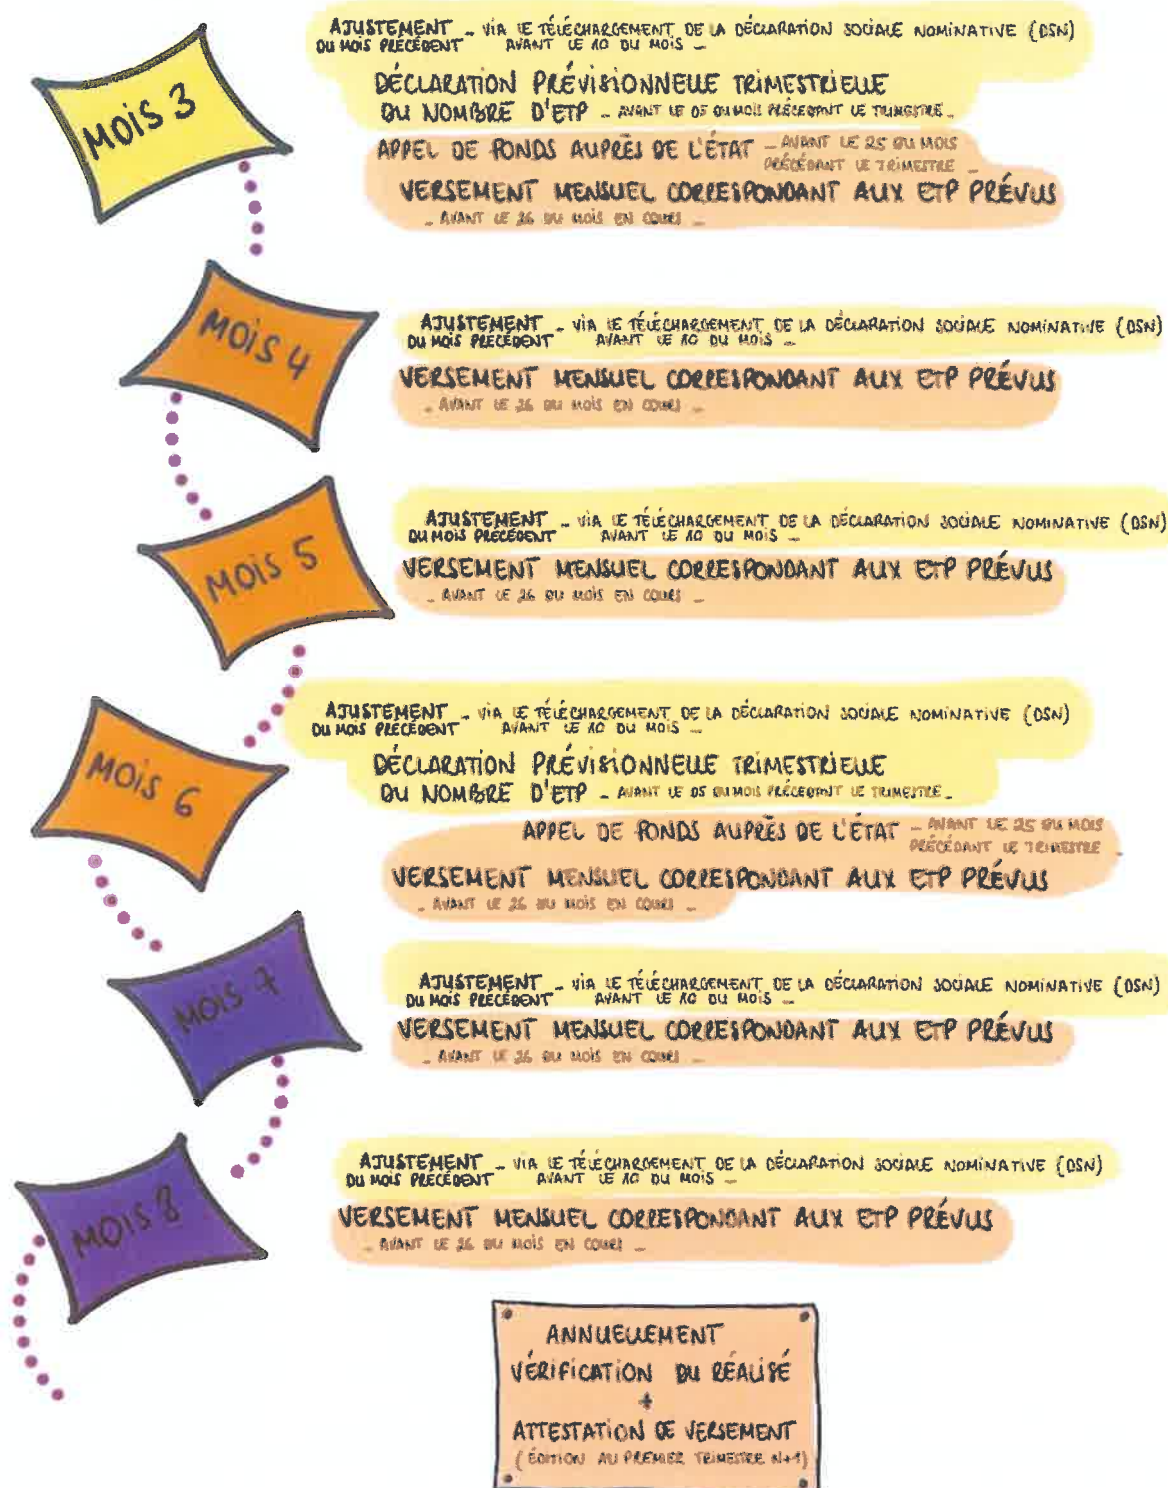 MOIS 3
AJUSTEMENT _ VIA LE TÉLÉCHARGEMENT DE LA DÉCLARATION SOCIALE NOMINATIVE (DSN)
DU MOIS PRÉCÉDENT AVANT LE 10 DU MOIS _
DÉCLARATION PRÉVISIONNELLE TRIMESTRIELLE
DU NOMBRE D'ETP _ AVANT LE 05 DU MOIS PRÉCÉDANT LE TRIMESTRE _
APPEL DE FONDS AUPRÈS DE L'ÉTAT _ AVANT LE 25 DU MOIS
PRÉCÉDANT LE TRIMESTRE _
VERSEMENT MENSUEL CORRESPONDANT AUX ETP PRÉVUS
_ AVANT LE 26 DU MOIS EN COURS _
MOIS 4
AJUSTEMENT _ VIA LE TÉLÉCHARGEMENT DE LA DÉCLARATION SOCIALE NOMINATIVE (DSN)
DU MOIS PRÉCÉDENT AVANT LE 10 DU MOIS _
VERSEMENT MENSUEL CORRESPONDANT AUX ETP PRÉVUS
_ AVANT LE 26 DU MOIS EN COURS _
MOIS 5
AJUSTEMENT _ VIA LE TÉLÉCHARGEMENT DE LA DÉCLARATION SOCIALE NOMINATIVE (DSN)
DU MOIS PRÉCÉDENT AVANT LE 10 DU MOIS _
VERSEMENT MENSUEL CORRESPONDANT AUX ETP PRÉVUS
_ AVANT LE 26 DU MOIS EN COURS _
MOIS 6
AJUSTEMENT _ VIA LE TÉLÉCHARGEMENT DE LA DÉCLARATION SOCIALE NOMINATIVE (DSN)
DU MOIS PRÉCÉDENT AVANT LE 10 DU MOIS _
DÉCLARATION PRÉVISIONNELLE TRIMESTRIELLE
DU NOMBRE D'ETP _ AVANT LE 05 DU MOIS PRÉCÉDANT LE TRIMESTRE _
APPEL DE FONDS AUPRÈS DE L'ÉTAT _ AVANT LE 25 DU MOIS
PRÉCÉDANT LE TRIMESTRE _
VERSEMENT MENSUEL CORRESPONDANT AUX ETP PRÉVUS
_ AVANT LE 26 DU MOIS EN COURS _
MOIS 7
AJUSTEMENT _ VIA LE TÉLÉCHARGEMENT DE LA DÉCLARATION SOCIALE NOMINATIVE (DSN)
DU MOIS PRÉCÉDENT AVANT LE 10 DU MOIS _
VERSEMENT MENSUEL CORRESPONDANT AUX ETP PRÉVUS
_ AVANT LE 26 DU MOIS EN COURS _
MOIS 8
AJUSTEMENT _ VIA LE TÉLÉCHARGEMENT DE LA DÉCLARATION SOCIALE NOMINATIVE (DSN)
DU MOIS PRÉCÉDENT AVANT LE 10 DU MOIS _
VERSEMENT MENSUEL CORRESPONDANT AUX ETP PRÉVUS
_ AVANT LE 26 DU MOIS EN COURS _
ANNUELLEMENT
VÉRIFICATION DU RÉALISÉ
+
ATTESTATION DE VERSEMENT
(ÉDITION AU PREMIER TRIMESTRE N+1)